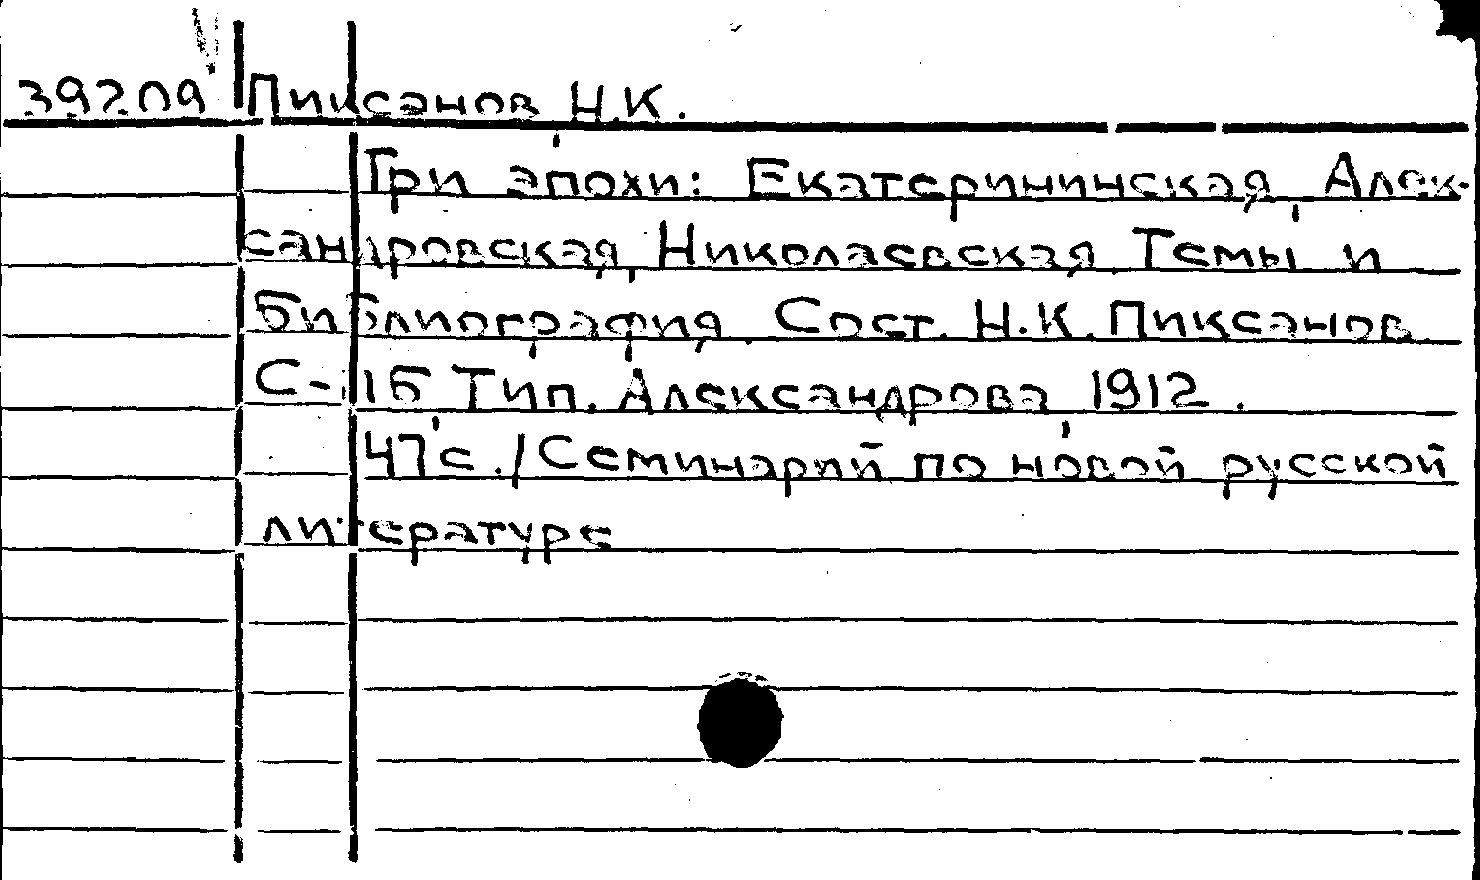 39209 Пиксанов, Н.К.
Три эпохи: Екатерининская, Алек-
сандровская, Николаевская. Темы и
библиография. Сост. Н.К. Пиксанов.
С-Пб, Тип. Александрова, 1912.
47 с. /Семинарий по новой русской
литературе